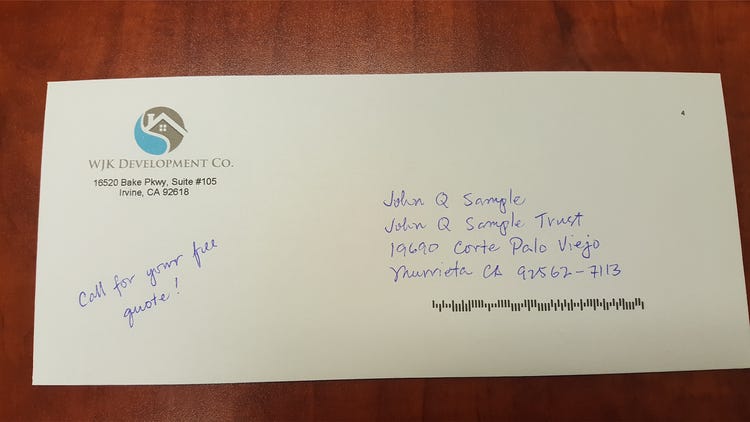 4
WJK DEVELOPMENT CO.
16520 Bake Pkwy, Suite #105
Irvine, CA 92618
John Q Sample
John Q Sample Trust
19690 Corte Palo Viejo
Murrieta CA 92562-7113
Call for your free
quote!